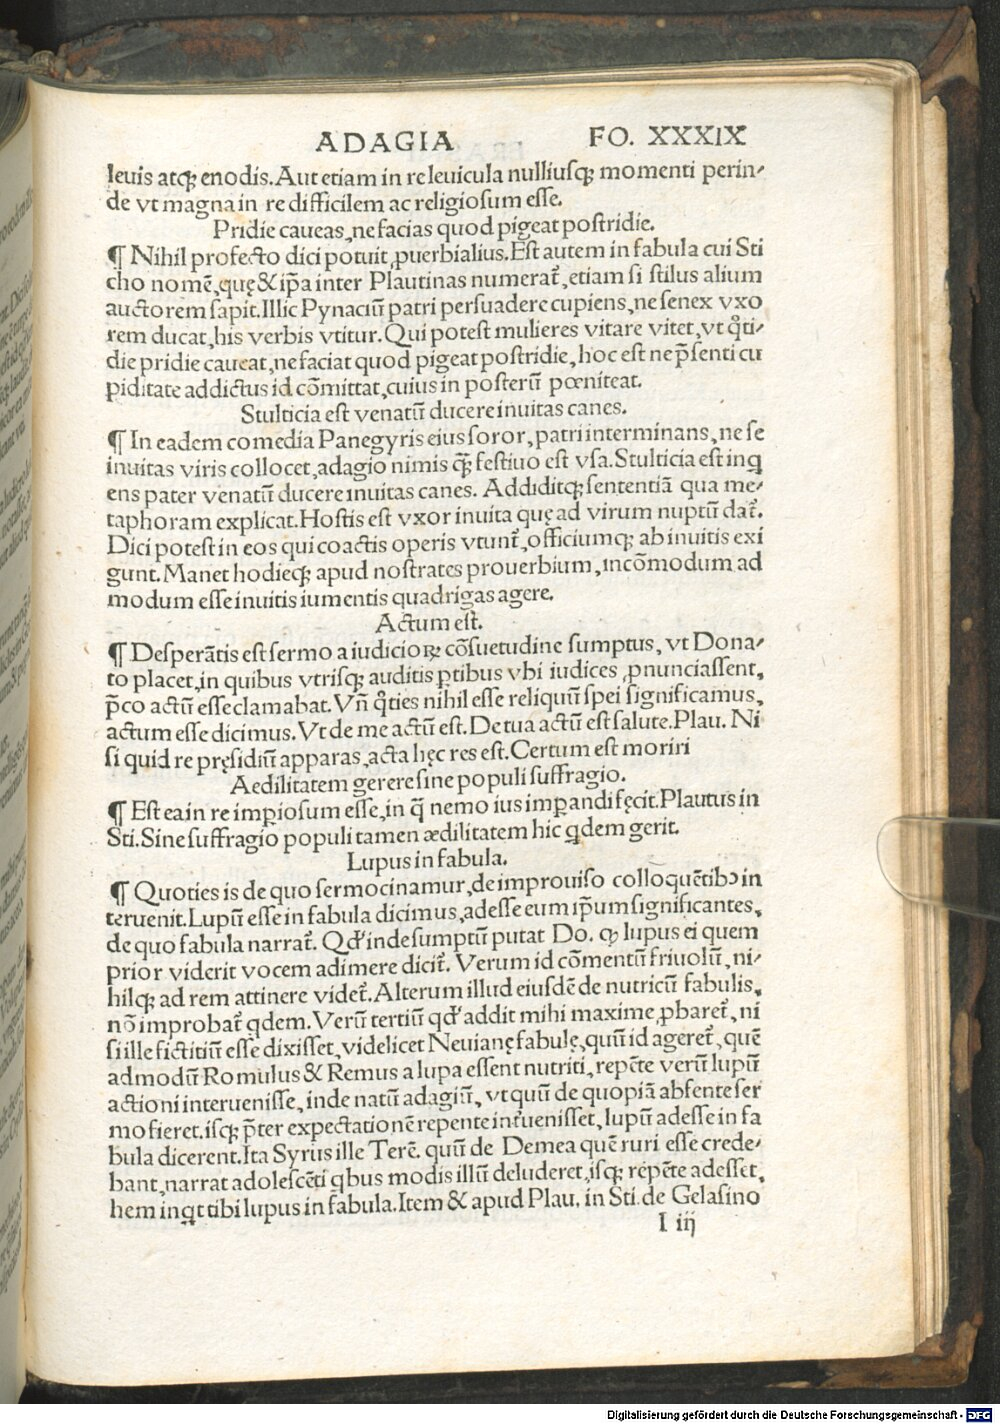 ADAGIA FO. XXXIX
leuis atqꝫ enodis. Aut etiam in re leuicula nulliusqꝫ momenti perin⸗
de vt magna in re difficilem ac religiosum esse.
Pridie caueas, ne facias quod pigeat postridie.
¶ Nihil profecto dici potuit ꝓuerbialius. Est autem in fabula cui Sti
cho nomē, quę & ip̄a inter Plautinas numerat᷑, etiam si stilus alium
auctorem sapit. Illic Pynaciū patri persuadere cupiens, ne senex vxo
rem ducat, his verbis vtitur. Qui potest mulieres vitare vitet, vt q̊ti⸗
die pridie caueat, ne faciat quod pigeat postridie, hoc est ne p̄senti cu
piditate addictus id cōmittat, cuius in posterū pœniteat.
Stulticia est venatū ducere inuitas canes.
¶ In eadem comedia Panegyris eius soror, patri interminans, ne se
inuitas viris collocet, adagio nimis q̄ꝫ festiuo est vsa. Stulticia est inq
ens pater venatū ducere inuitas canes. Addiditqꝫ sententiā qua me⸗
taphoram explicat. Hostis est vxor inuita quę ad virum nuptū dat᷑.
Dici potest in eos qui coactis operis vtunt᷑, officiumqꝫ ab inuitis exi
gunt. Manet hodieqꝫ apud nostrates prouerbium, incōmodum ad
modum esse inuitis iumentis quadrigas agere.
Actum est.
¶ Desperātis est sermo a iudicioꝝ cōsuetudine sumptus, vt Dona⸗
to placet, in quibus vtrisqꝫ auditis ꝑtibus vbi iudices ꝓnunciassent,
p̄co actū esse clamabat. Vn̄ q̊ties nihil esse reliquū spei significamus,
actum esse dicimus. Vt de me actū est. De tua actū est salute. Plau. Ni
si quid re pręsidiū apparas, acta hęc res est. Certum est moriri
Aedilitatem gerere sine populi suffragio.
¶ Est ea in re impiosum esse, in q̄ nemo ius imꝑandi fęcit. Plautus in
Sti. Sine suffragio populi tamen ædilitatem hic qdem gerit.
Lupus in fabula.
¶ Quoties is de quo sermocinamur, de improuiso colloquētibꝰ in
teruenit. Lupū esse in fabula dicimus, adesse eum ip̄um significantes,
de quo fabula narrat᷑. Qd' inde sumptū putat Do. qꝫ lupus ei quem
prior viderit vocem adimere dicit᷑. Verum id cōmentū friuolū, ni⸗
hilqꝫ ad rem attinere videt᷑. Alterum illud eiusdē de nutricū fabulis,
nō improbat᷑ qdem. Verū tertiū qd' addit mihi maxime ꝓbaret᷑, ni
si ille fictitiū esse dixisset, videlicet Neuianę fabulę, quū id ageret᷑, quē
admodū Romulus & Remus a lupa essent nutriti, repēte verū lupū
actioni interuenisse, inde natū adagiū, vt quū de quopiā absente ser
mo fieret, isqꝫ p̄ter expectationē repente interuenisset, lupū adesse in fa
bula dicerent. Ita Syrus ille Terē. quū de Demea quē ruri esse crede⸗
bant, narrat adolescēti qbus modis illū deluderet, isqꝫ repēte adesset,
hem inqt tibi lupus in fabula. Item & apud Plau. in Sti. de Gelasino
I iij
Digitalisierung gefördert durch die Deutsche Forschungsgemeinschaft - DFG